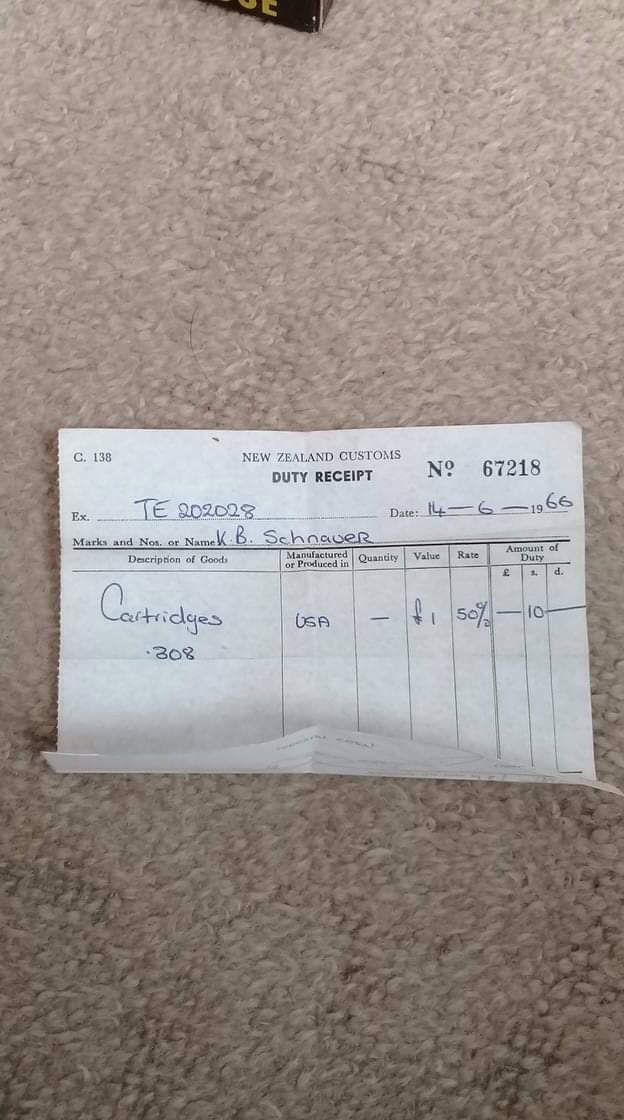 C. 138
NEW ZEALAND CUSTOMS
DUTY RECEIPT
Nº 67218
Ex. TE 202028
Date: 14 — 6 — 1966
Marks and Nos. or Name K.B. Schnauer
Description of Goods
Manufactured or Produced in
Quantity
Value
Rate
Amount of Duty
£ s. d.
Cartridges USA — £1 50% — 10 —
.308